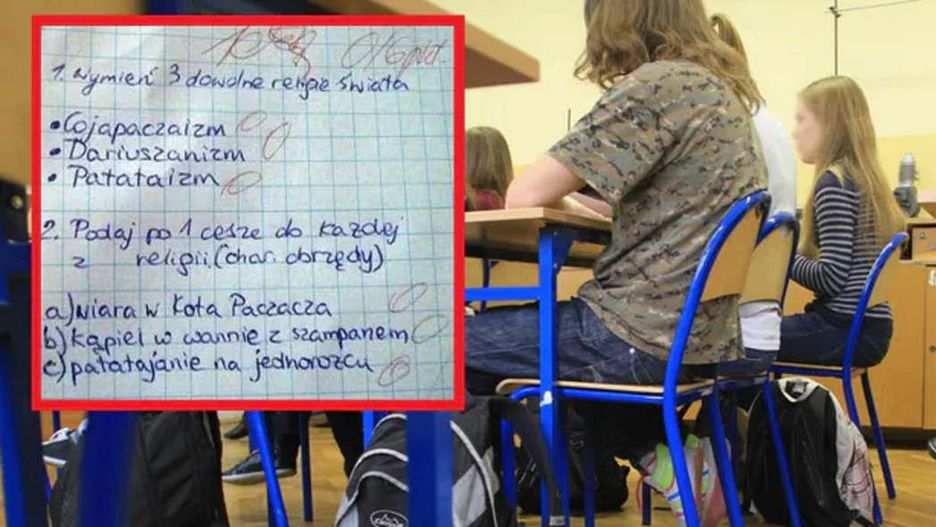 0/6 pkt
1. Wymień 3 dowolne religie świata
• Cojapaczaizm 0
• Dariuszanizm 0
• Patataizm 0
2. Podaj po 1 cesze do każdej
z religii (char. obrzędy)
a) wiara w Kota Paczacza 0
b) kąpiel w wannie z szampanem 0
c) patatajanie na jednorożcu 0